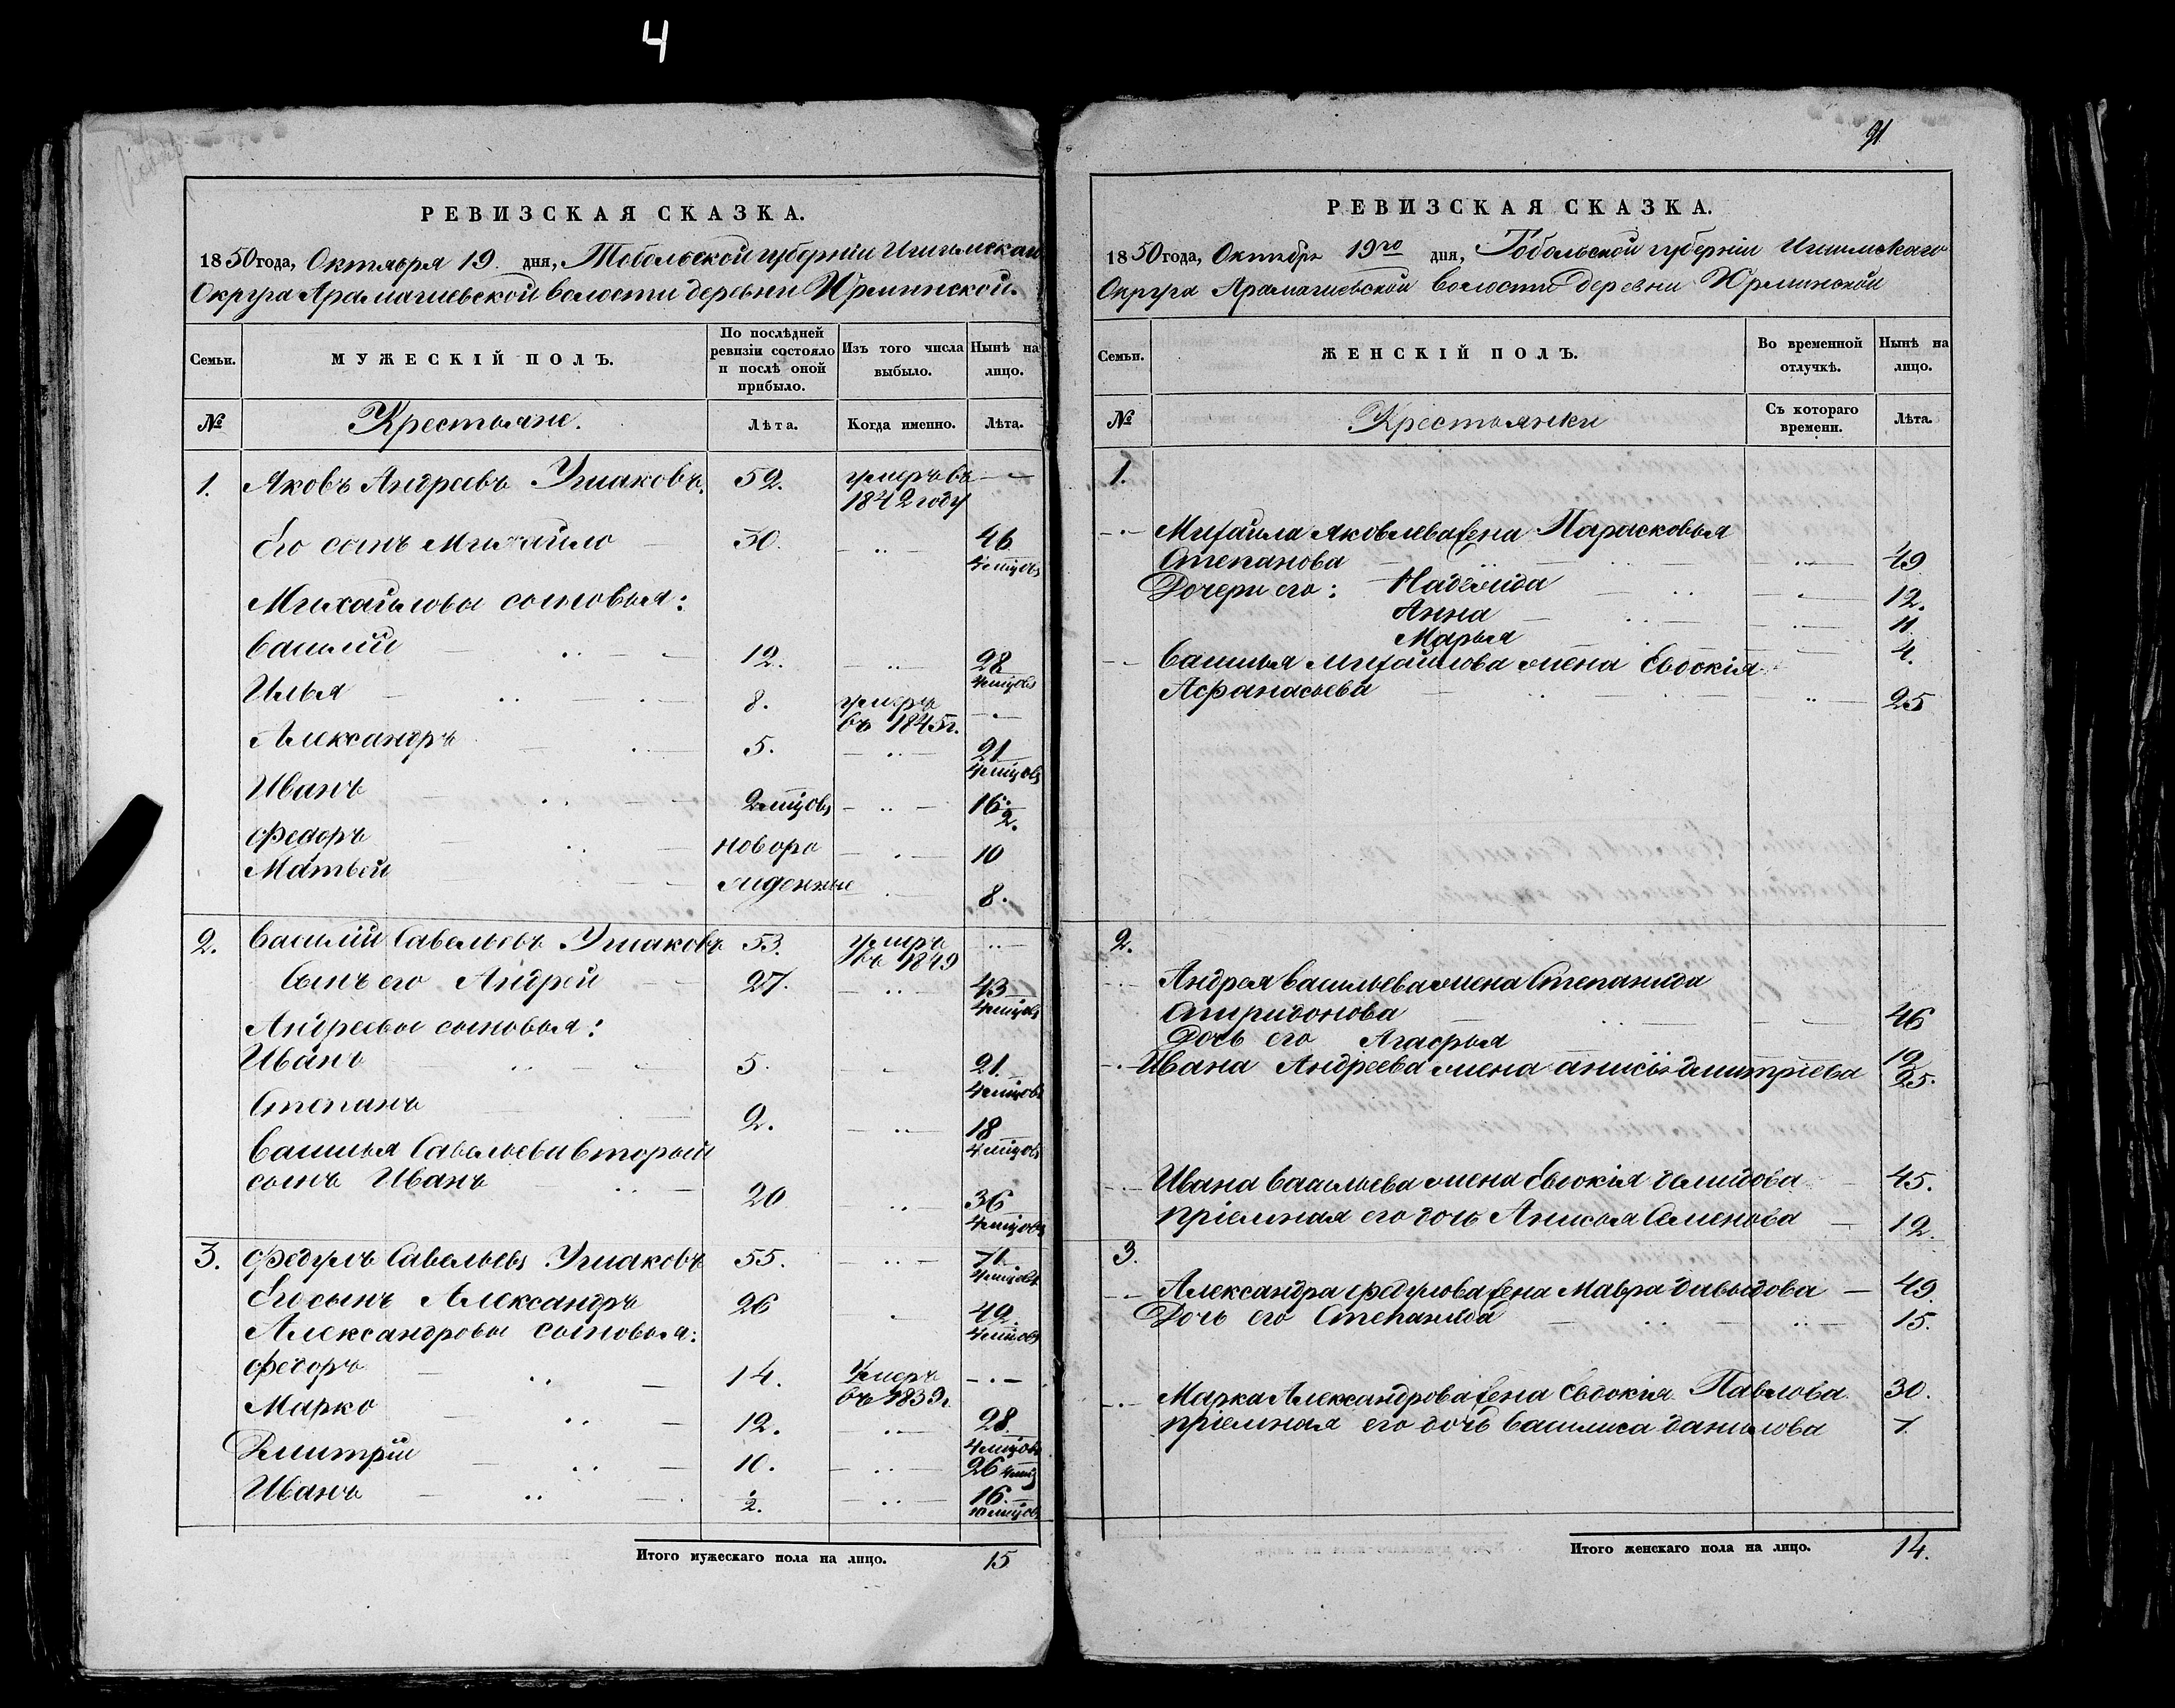 4
РЕВИЗСКАЯ СКАЗКА.
1850 года, Октября 19. дня, Тобольской губерніи Ишимскаго
Округа Арамашевской волости деревни Юрминской.
Семьи.
МУЖЕСКІЙ ПОЛЪ.
По послѣдней ревизіи состояло и послѣ оной прибыло.
Изъ того числа выбыло.
Нынѣ на лицо.
№
Крестьяне.
Лѣта.
Когда именно.
Лѣта.
1. Яковъ Андреевъ Ушаковъ. 52. умеръ въ 1842 году
Его сынъ Михайло 30. 46 4 мцовъ
Михайловы сыновья:
Василій 12. 28 4 мцовъ
Илья 8. умеръ въ 1845 г.
Александръ 5. 21 4 мцовъ
Иванъ 2 мцовъ 16. 2.
Федоръ новоро 10
Матвей жденные 8.
2. Василій Савельевъ Ушаковъ 53. умеръ въ 1849
Сынъ его Андрей 27. 43 4 мцовъ
Андреевы сыновья:
Иванъ 5. 21. 4 мцовъ
Степанъ 2. 18 4 мцовъ
Василья Савельева вторый
сынъ Иванъ 20 36 4 мцовъ
3. Федулъ Савельевъ Ушаковъ 55. 71. 4 мцовъ
Его сынъ Александръ 26 42. 4 мцовъ
Александровы сыновья:
Федоръ 14. Умеръ въ 1839 г.
Марко 12. 28. 4 мцовъ
Дмитрій 10. 26 4 мц
Иванъ ½. 16. 10 мцовъ
Итого мужескаго пола на лицо. 15
91
РЕВИЗСКАЯ СКАЗКА.
1850 года, Октября 19го дня, Тобольской губерніи Ишимскаго
Округа Арамашевской волости деревни Юрминской
Семьи.
ЖЕНСКІЙ ПОЛЪ.
Во временной отлучкѣ.
Нынѣ на лицо.
№
Крестьянки
Съ котораго времени.
Лѣта.
1.
Михайла Яковлева жена Парасковья
Степанова 49
Дочери его: Надежда 12.
Анна 11
Марья 4.
Василья Михайлова жена Евдокія
Афанасьева 25
2.
Андрея Васильева жена Степанида
Спиридонова 46
Дочь его Агафья 19
Ивана Андреева жена анисія дмитріева 25.
Ивана Васильева жена Евдокія демидова 45.
пріемная его дочь Анисья Семенова 12.
3.
Александра Федулова жена Мавра давыдова 49
Дочь его Степанида 15.
Марка Александрова жена Евдокія Павлова 30.
пріемная его дочь Василиса данилова 7.
Итого женскаго пола на лицо. 14.